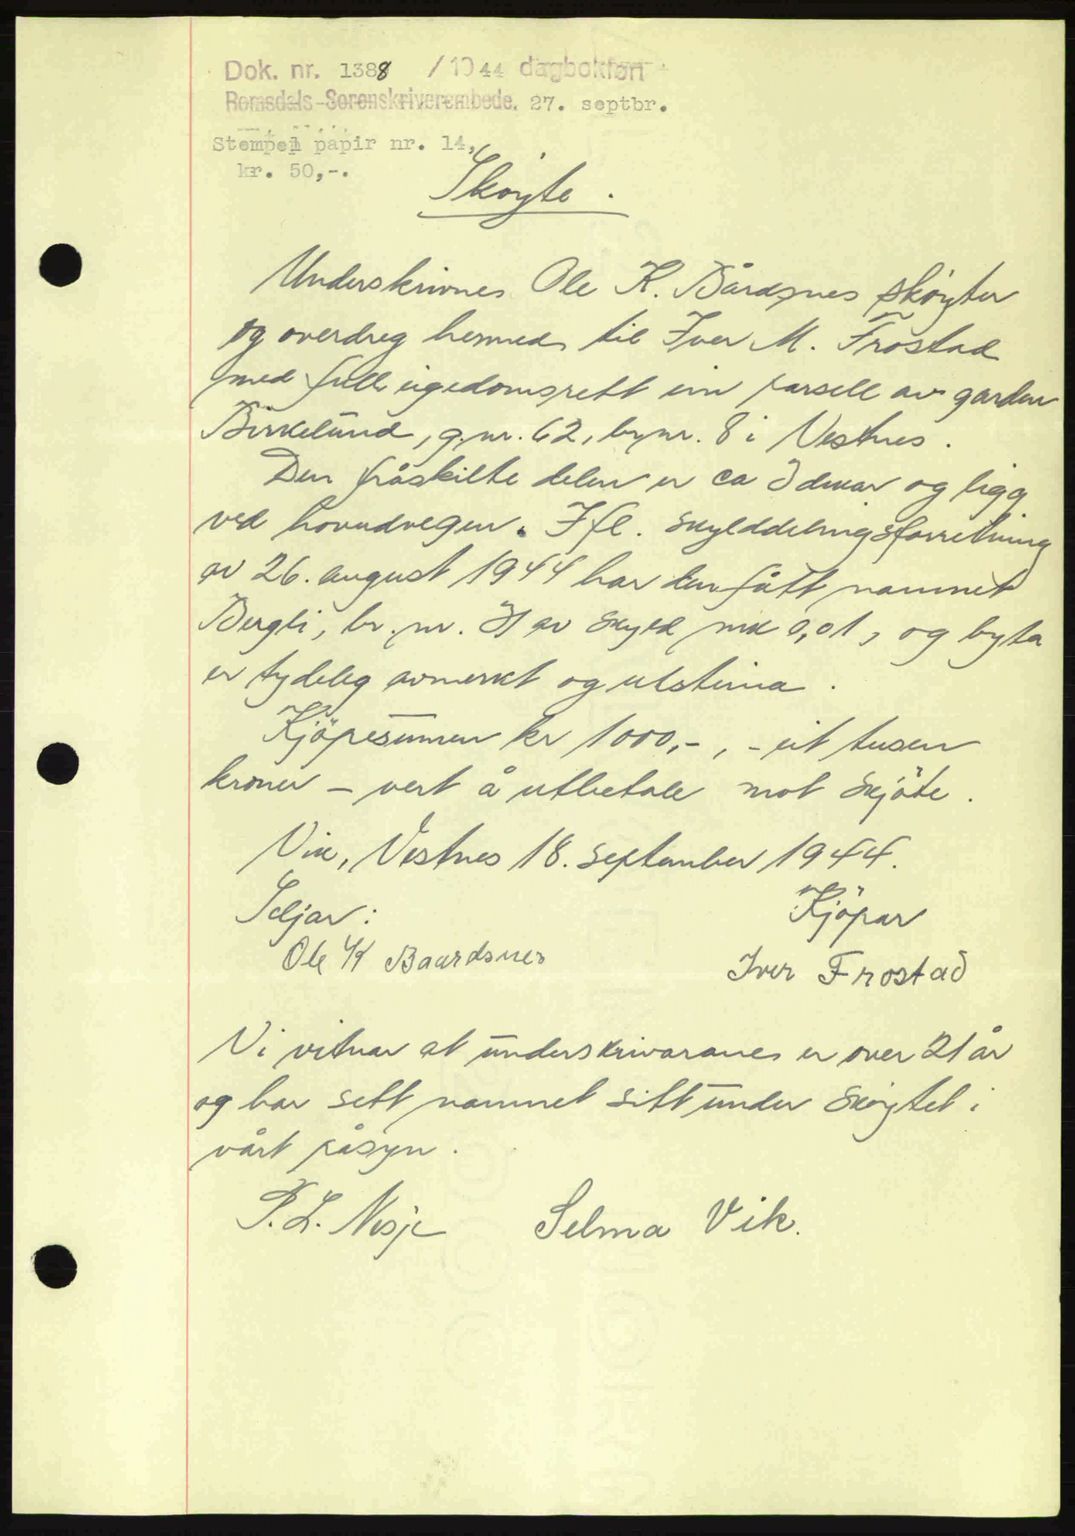 Dok. nr. 1388 /1944 dagbokført
Romsdals Sorenskriverembede. 27. septbr.
Stempel papir nr. 14,
kr. 50,-.
Skøyte.
Underskrivnes Ole K. Bårdsnes skøyter
og overdreg hermed til Iver M. Frostad
med full eigedomsrett ein parsell av garden
Birkelund, g.nr. 62, br.nr. 8 i Vestnes.
Den fråskilte delen er ca dekar og ligg
ved hovudvegen. Ifl. skylddelingsforretning
av 26. august 1944 har den fått namnet
Bergli, br. nr. av skyld mk 0,01, og byta
er tydeleg avmerkt og utsteina.
Kjöpesumen kr 1000,-, - eit tusen
kroner - vert å utbetale mot skjöte.
Vik, Vestnes 18. september 1944.
Seljar: Kjöpar
Ole K Baardsnes Iver Frostad
Vi vitnar at underskrivarane er over 21 år
og har sett namnet sitt under skøytet i
vårt påsyn.
P. L. Nesje Selma Vik.